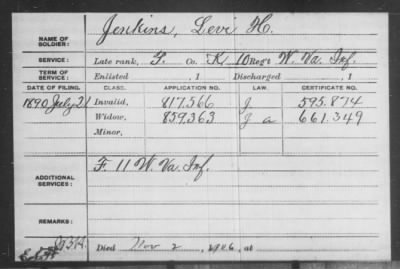 NAME OF SOLDIER: Jenkins, Levi H.
SERVICE: Late rank, Co. K, 10 Reg't W. Va. Inf.
TERM OF SERVICE: Enlisted , 1 Discharged , 1
DATE OF FILING. CLASS. APPLICATION NO. LAW. CERTIFICATE NO.
1890 July 21 Invalid, 817.566 J 595.874
Widow, 859.363 J a 661.349
Minor,
ADDITIONAL SERVICES: F. 11 W. Va. Inf.
REMARKS:
Died Nov 2, , at